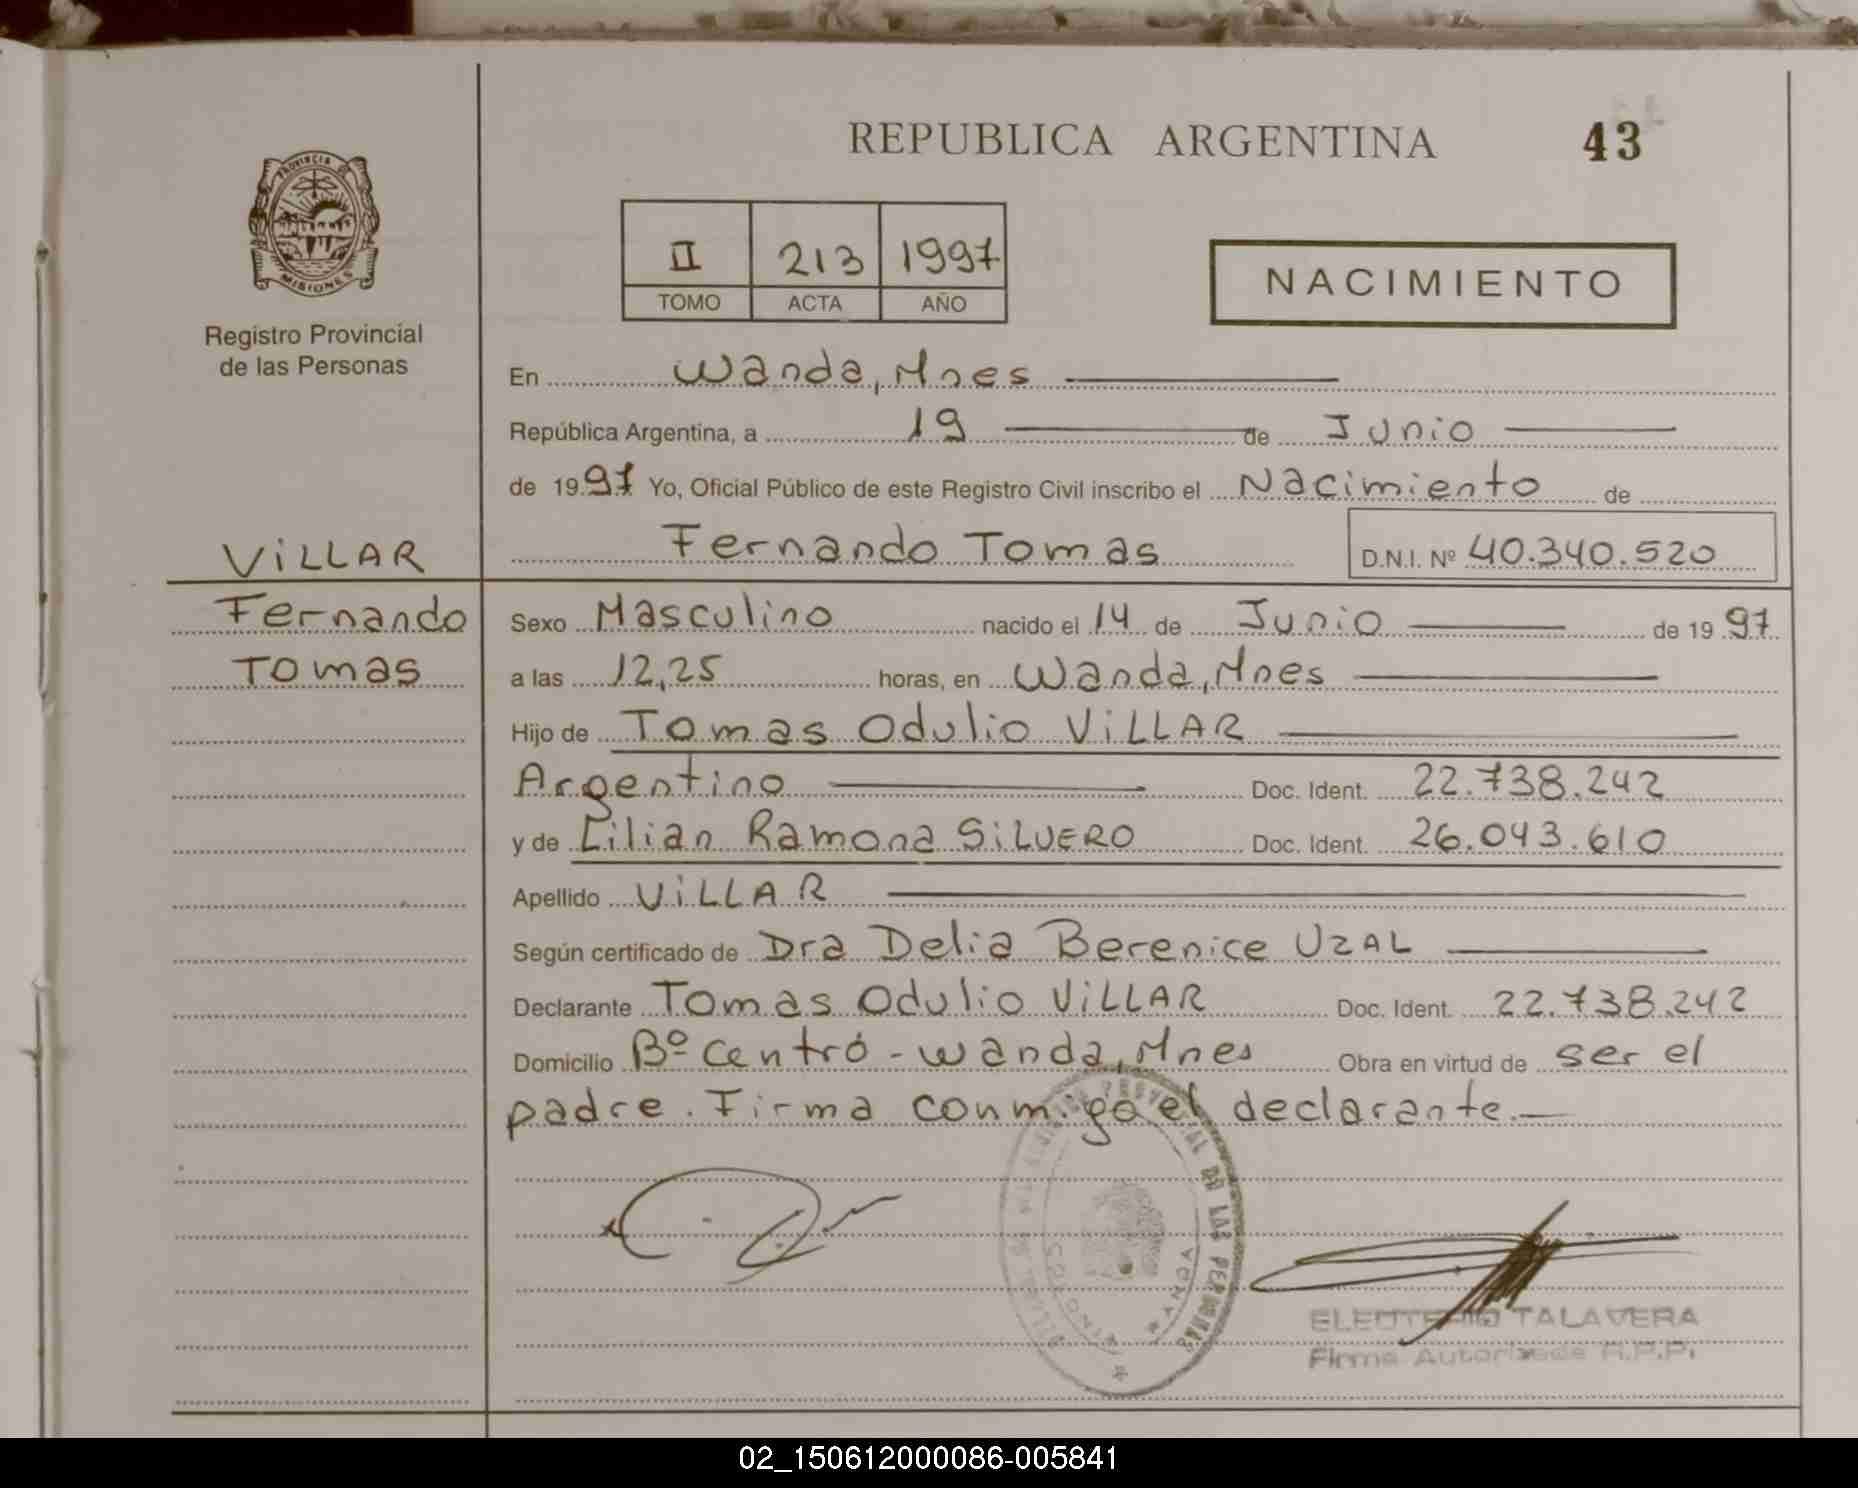 REPUBLICA ARGENTINA
43
PROVINCIA DE MISIONES
Registro Provincial
de las Personas
II 213 1997
TOMO ACTA AÑO
NACIMIENTO
En Wanda, Mnes
República Argentina, a 19 de Junio
de 1997 Yo, Oficial Público de este Registro Civil inscribo el Nacimiento de
Fernando Tomas D.N.I. Nº 40.340.520
VILLAR
Fernando
Tomas
Sexo Masculino nacido el 14 de Junio de 1997
a las 12,25 horas, en Wanda, Mnes
Hijo de Tomas Odulio VILLAR
Argentino Doc. Ident. 22.738.242
y de Lilian Ramona SILVERO Doc. Ident. 26.043.610
Apellido VILLAR
Según certificado de Dra Delia Berenice UZAL
Declarante Tomas Odulio VILLAR Doc. Ident. 22.738.242
Domicilio Bº Centro - Wanda, Mnes Obra en virtud de ser el
padre. Firma conmigo el declarante.
PROVINCIAL DE LAS PERSONAS
WANDA
MISIONES
ELEUTERIO TALAVERA
Firma Autorizada R.P.P.
02_150612000086-005841